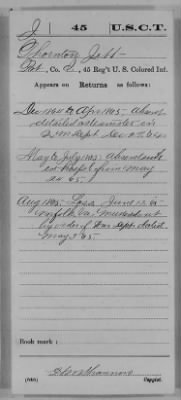 J | 45 | U.S.C.T.
Thornton Jett
Pvt, Co. I, 45 Reg't U. S. Colored Inf.
Appears on
Returns as follows:
Dec 1864 to Apr 1865 Absent
detailed teamster in
Q M Dept Dec 2 64
May & July 1865 Absent sick
in Hosp since May
24 65
Aug 1865 Loss June 13 65
Norfolk Va. Mustered out
by order of War Dept dated
May 3 65
Book mark:
Copyist.